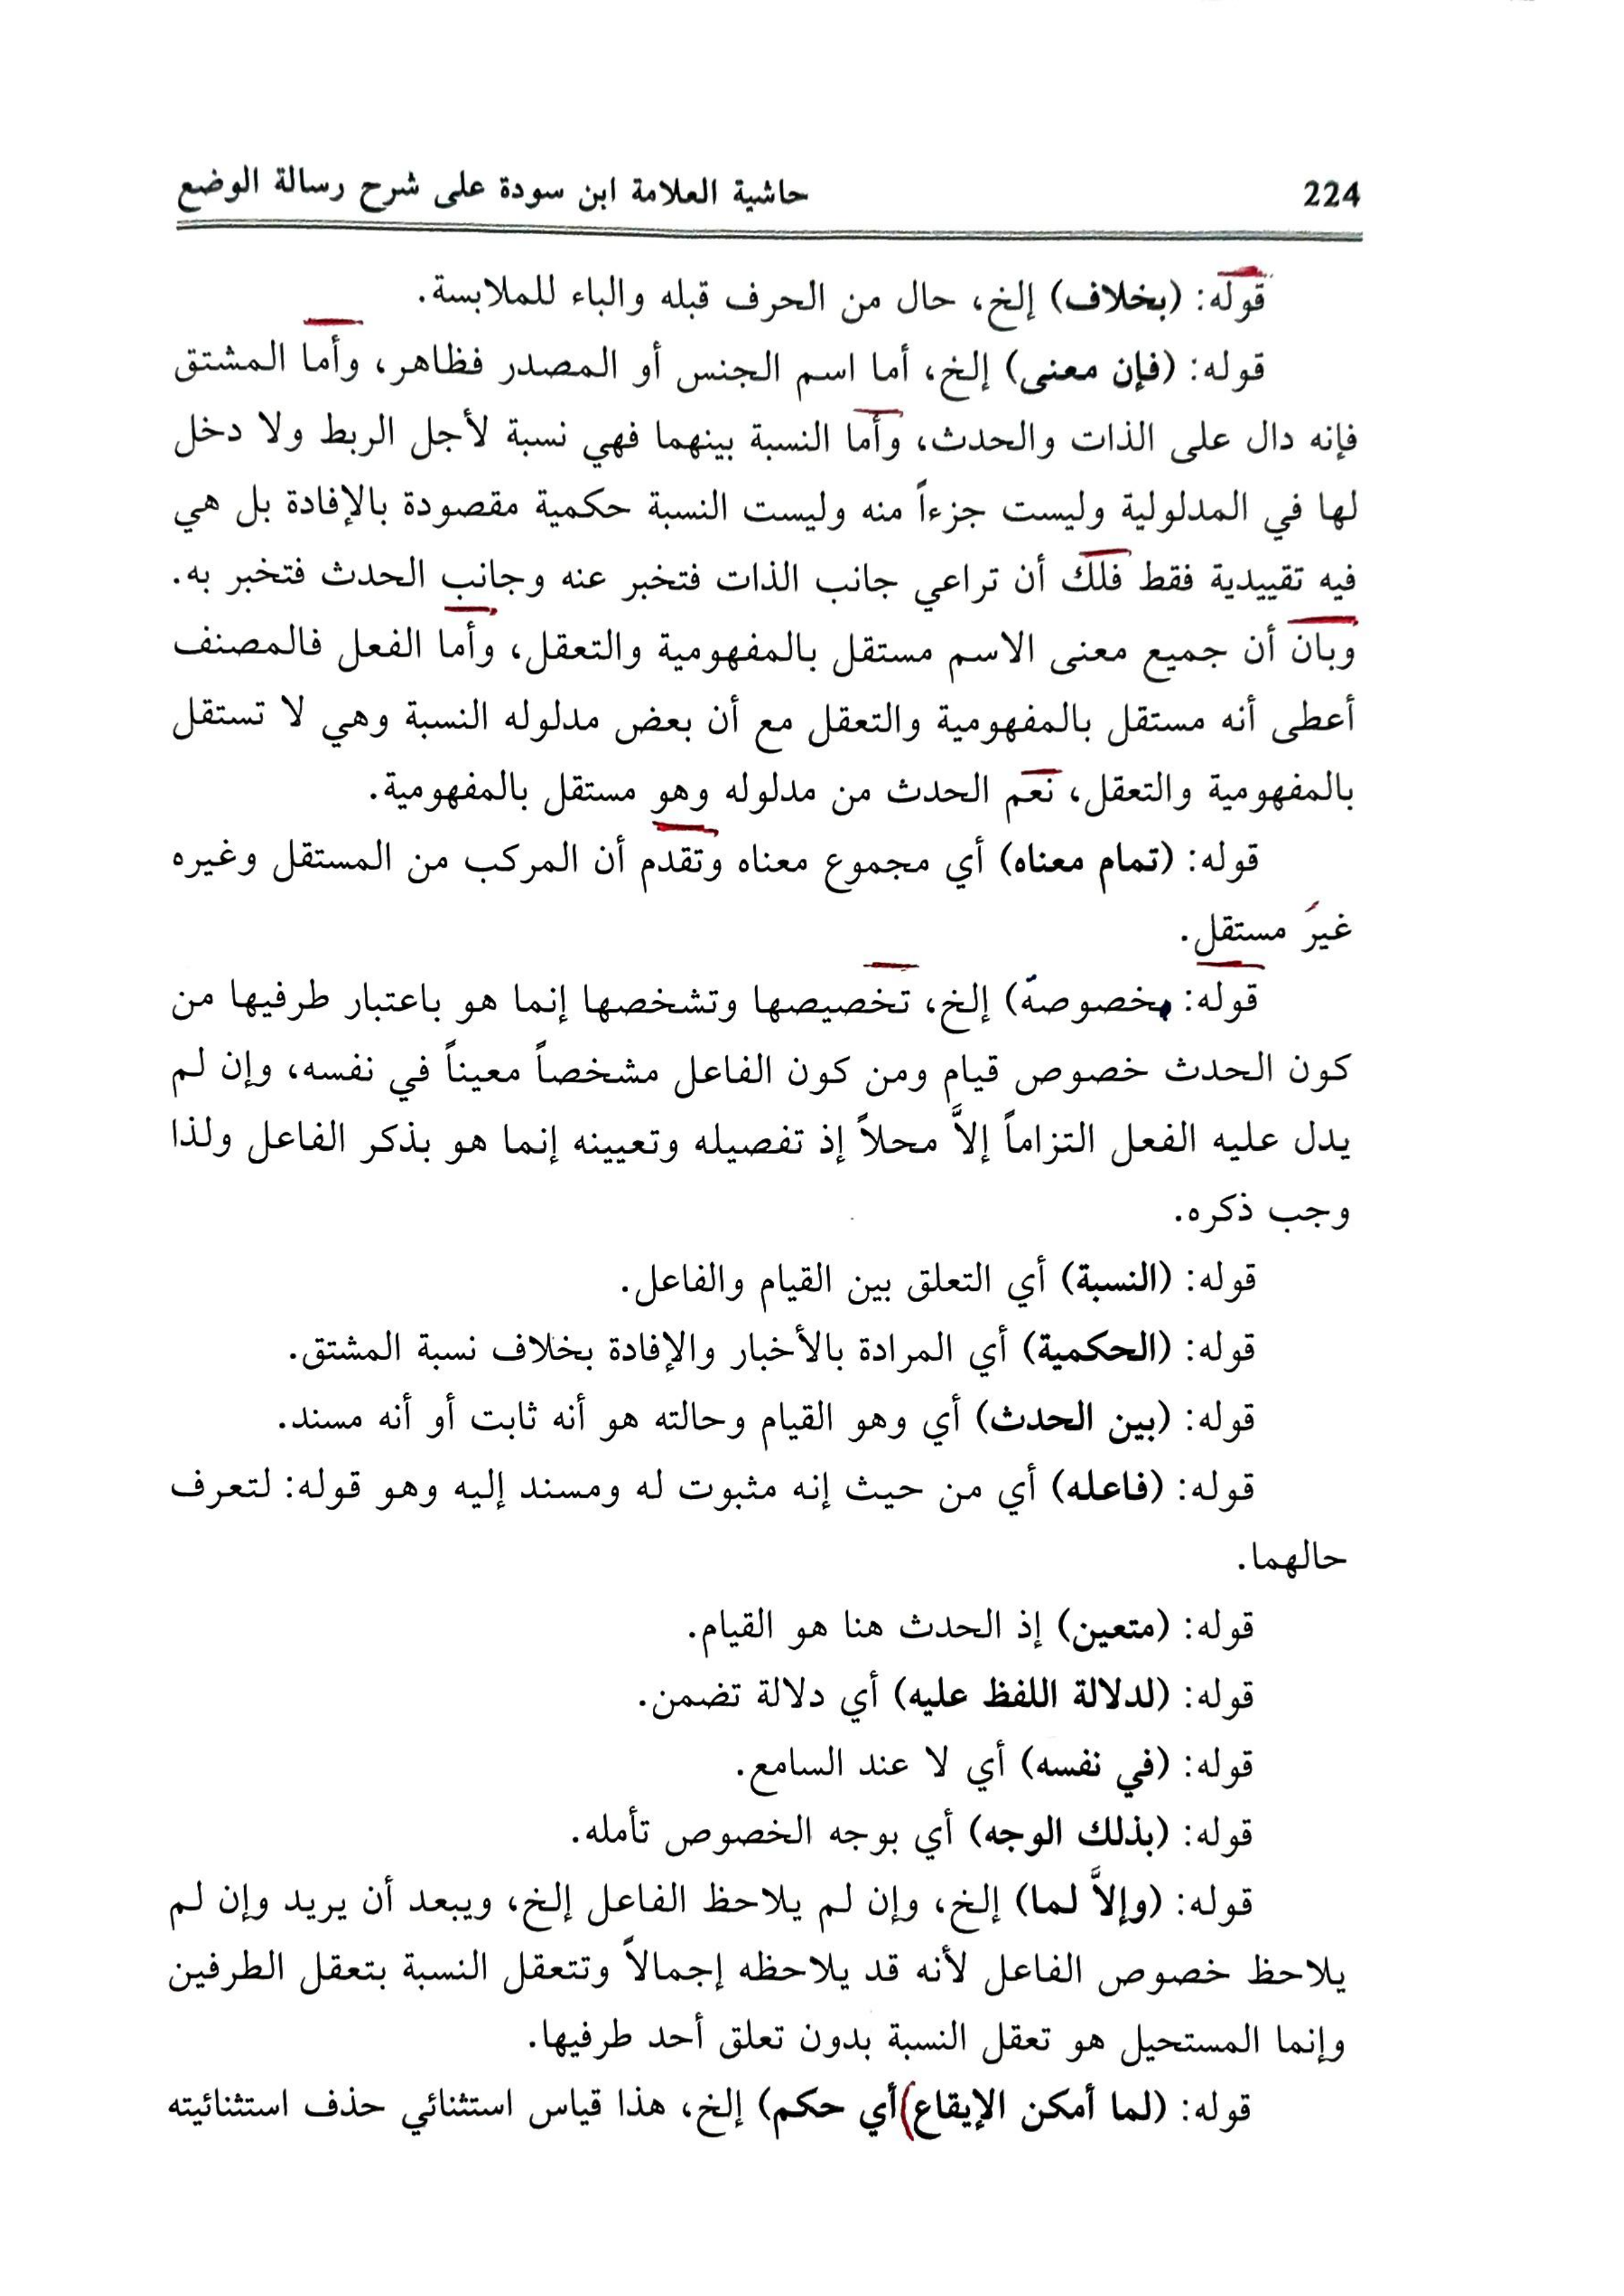 224 حاشية العلامة ابن سودة على شرح رسالة الوضع
قوله: (بخلاف) إلخ، حال من الحرف قبله والباء للملابسة.
قوله: (فإن معنى) إلخ، أما اسم الجنس أو المصدر فظاهر، وأما المشتق
فإنه دال على الذات والحدث، وأما النسبة بينهما فهي نسبة لأجل الربط ولا دخل
لها في المدلولية وليست جزءاً منه وليست النسبة حكمية مقصودة بالإفادة بل هي
فيه تقييدية فقط فلك أن تراعي جانب الذات فتخبر عنه وجانب الحدث فتخبر به.
وبان أن جميع معنى الاسم مستقل بالمفهومية والتعقل، وأما الفعل فالمصنف
أعطى أنه مستقل بالمفهومية والتعقل مع أن بعض مدلوله النسبة وهي لا تستقل
بالمفهومية والتعقل، نعم الحدث من مدلوله وهو مستقل بالمفهومية.
قوله: (تمام معناه) أي مجموع معناه وتقدم أن المركب من المستقل وغيره
غيرَ مستقل.
قوله: بخصوصة) إلخ، تخصيصها وتشخصها إنما هو باعتبار طرفيها من
كون الحدث خصوص قيام ومن كون الفاعل مشخصاً معيناً في نفسه، وإن لم
يدل عليه الفعل التزاماً إلاَّ محلاً إذ تفصيله وتعيينه إنما هو بذكر الفاعل ولذا
وجب ذكره.
قوله: (النسبة) أي التعلق بين القيام والفاعل.
قوله: (الحكمية) أي المرادة بالأخبار والإفادة بخلاف نسبة المشتق.
قوله: (بين الحدث) أي وهو القيام وحالته هو أنه ثابت أو أنه مسند.
قوله: (فاعله) أي من حيث إنه مثبوت له ومسند إليه وهو قوله: لتعرف
حالهما.
قوله: (متعين) إذ الحدث هنا هو القيام.
قوله: (لدلالة اللفظ عليه) أي دلالة تضمن.
قوله: (في نفسه) أي لا عند السامع.
قوله: (بذلك الوجه) أي بوجه الخصوص تأمله.
قوله: (وإلاَّ لما) إلخ، وإن لم يلاحظ الفاعل إلخ، ويبعد أن يريد وإن لم
يلاحظ خصوص الفاعل لأنه قد يلاحظه إجمالاً وتتعقل النسبة بتعقل الطرفين
وإنما المستحيل هو تعقل النسبة بدون تعلق أحد طرفيها.
قوله: (لما أمكن الإيقاع)أي حكم) إلخ، هذا قياس استثنائي حذف استثنائيته